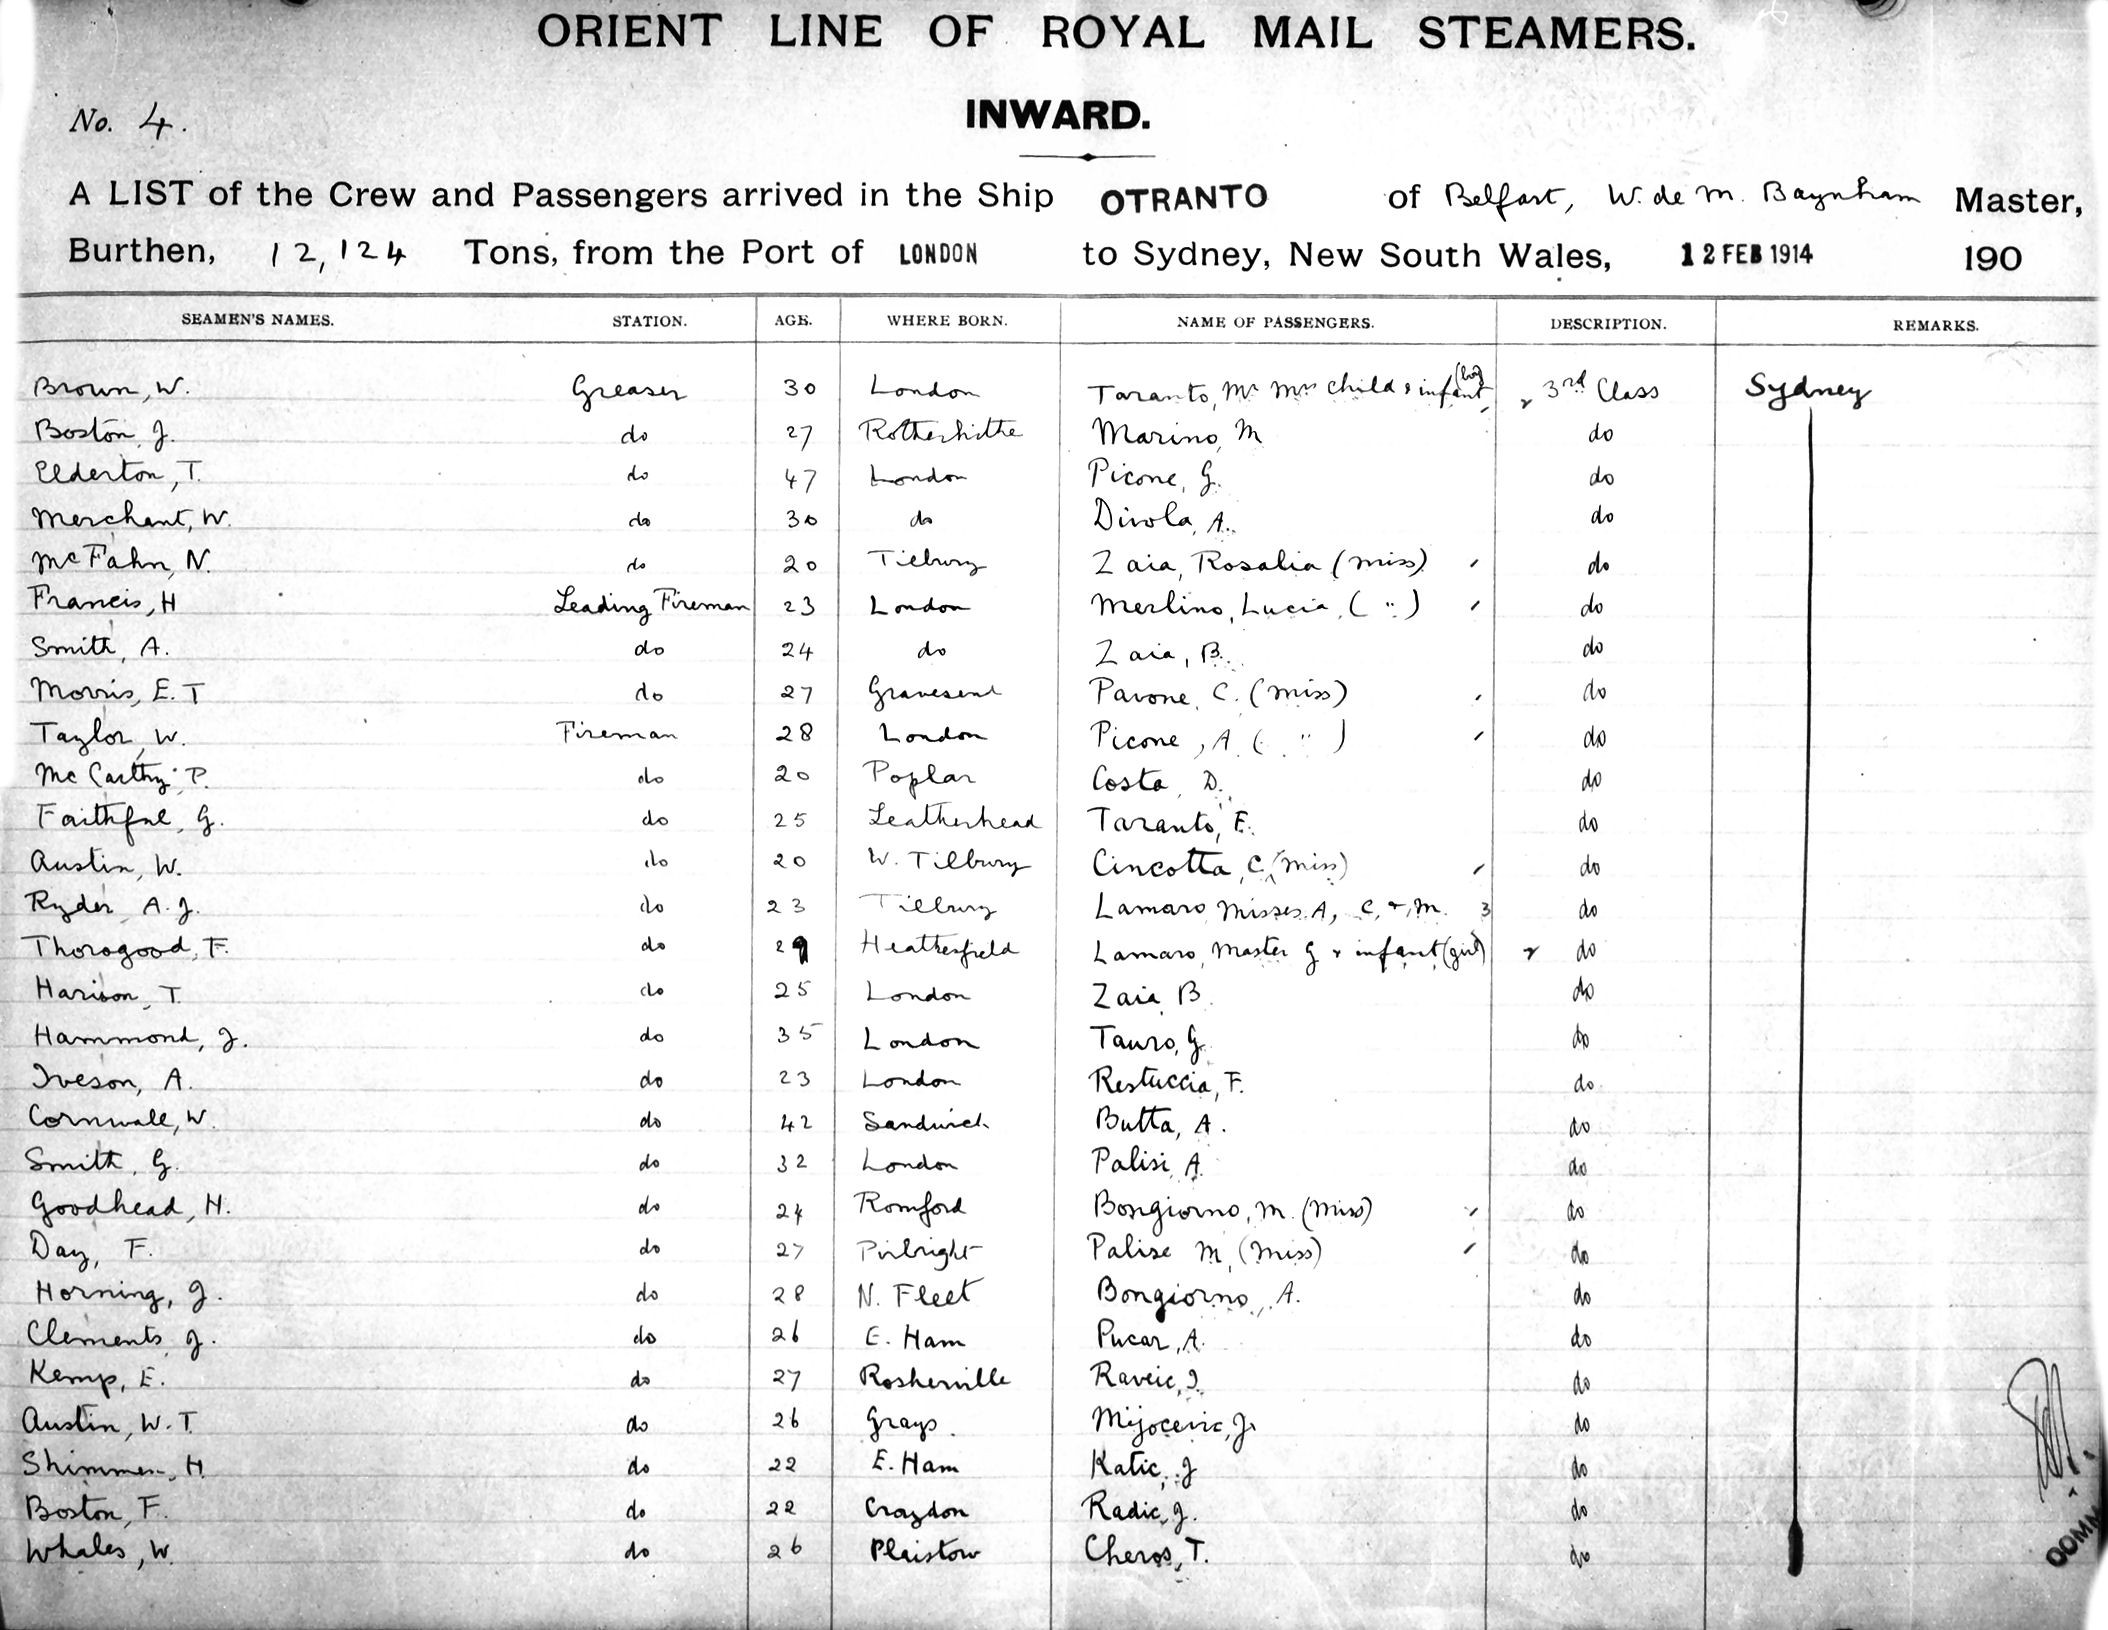 ORIENT LINE OF ROYAL MAIL STEAMERS.
No. 4.
INWARD.
A LIST of the Crew and Passengers arrived in the Ship OTRANTO of Belfast, W. de M. Baynham Master,
Burthen, 12,124 Tons, from the Port of LONDON to Sydney, New South Wales, 12 FEB 1914 190
SEAMEN'S NAMES. STATION. AGE. WHERE BORN. NAME OF PASSENGERS. DESCRIPTION. REMARKS.
Brown, W. Greaser 30 London Taranto, Mr Mrs Child & infant (boy) 3rd Class Sydney
Boston, J. do 27 Rotherhithe Marino, M do
Elderton, T. do 47 London Picone, G. do
Merchant, W. do 30 do Divola, A. do
McFahn, N. do 20 Tilbury Zaia, Rosalia (Miss) do
Francis, H Leading Fireman 23 London Merlino, Lucia, ( " ) do
Smith, A. do 24 do Zaia, B. do
Morris, E. T do 27 Gravesend Pavone, C. (Miss) do
Taylor, W. Fireman 28 London Picone, A ( " ) do
McCarthy, P. do 20 Poplar Costa, D. do
Faithful, G. do 25 Leatherhead Taranto, E. do
Austin, W. do 20 W. Tilbury Cincotta, C, (Miss) do
Ryder A. J. do 23 Tilbury Lamaro, Misses A, C, & M. 3 do
Thorogood, F. do 29 Heathersfield Lamaro, Master G & infant (girl) do
Harison, T. do 25 London Zaia B. do
Hammond, J. do 35 London Tauro, G. do
Iveson, A. do 23 London Restuccia, F. do
Cornwall, W. do 42 Sandwich Butta, A. do
Smith, G. do 32 London Palisi, A. do
Goodhead, H. do 24 Romford Bongiorno, M. (Miss) do
Day, F. do 27 Pirbright Palise M, (Miss) do
Horning, J. do 28 N. Fleet Bongiorno, A. do
Clements, J. do 26 E. Ham Pucar, A. do
Kemp, E. do 27 Rosherville Raveic, I. do
Austin, W. T. do 26 Grays. Mijocevic, J. do
Shimmen, H. do 22 E. Ham Katic, J do
Boston, F. do 22 Croydon Radic, J. do
Whales, W. do 26 Plaistow Cheros, T. do